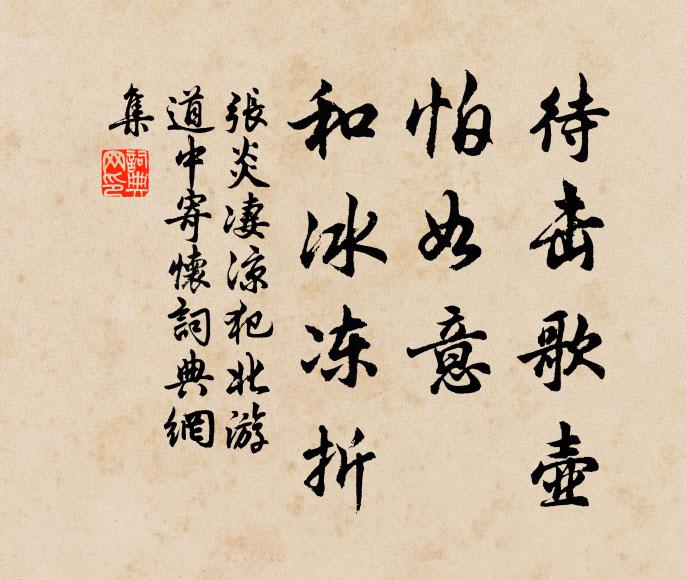 待击歌壶
怕如意
和冰冻折
張炎凄凉犯北游
道中寄懷詞典網
集
詞典網印